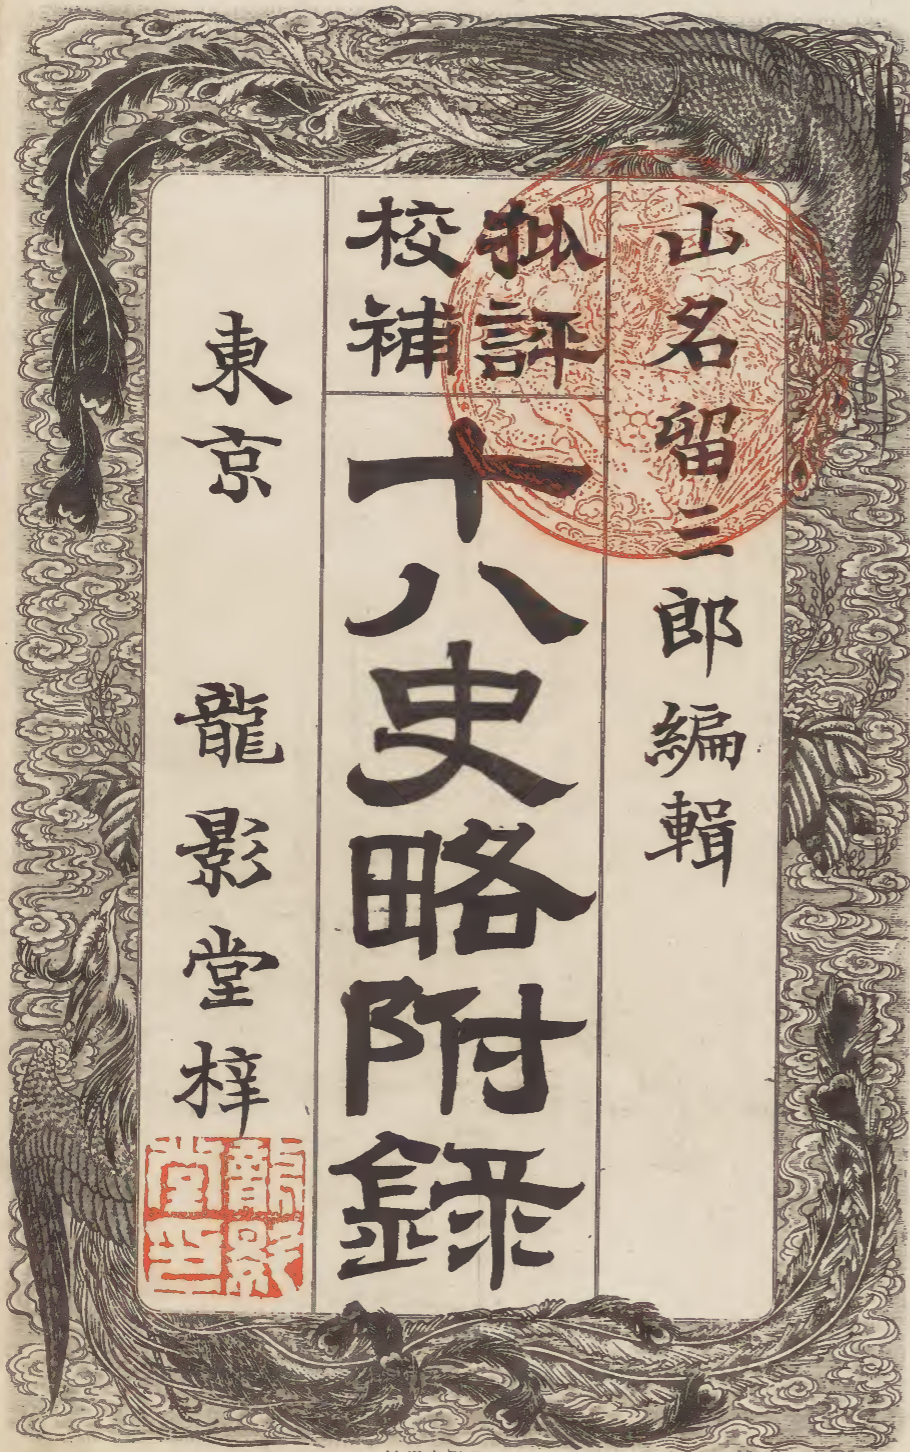 山名留三郎編輯
批評
校補
十八史略附錄
東京 龍影堂梓
龍影
堂章